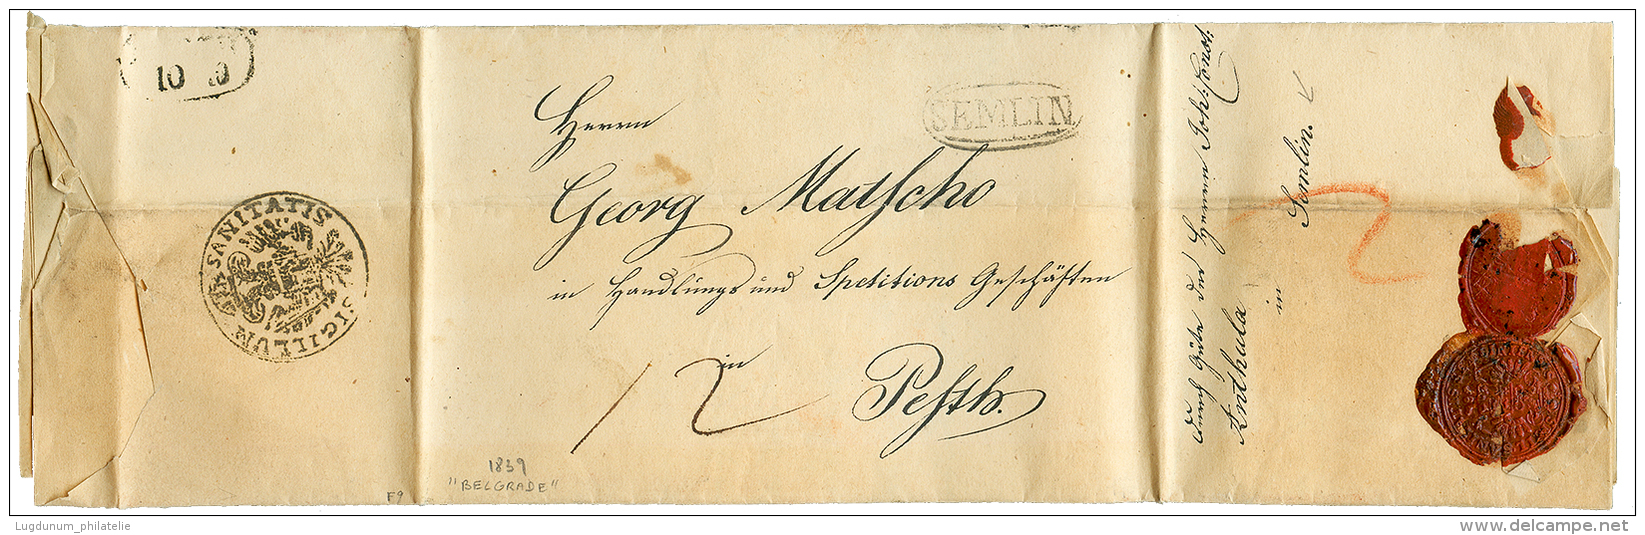 10 10
SIGILLUM SANITATIS
SEMLIN
Herrn
Georg Matscho
in Handlungs und Spetitions Geschäften
in
Pesth.
12
1839
"BELGRADE"
F9
durch Güte des Herrn Joh: Const:
Anthula
in
Semlin.
2
Lugdunum_philatelie
www.delcampe.net